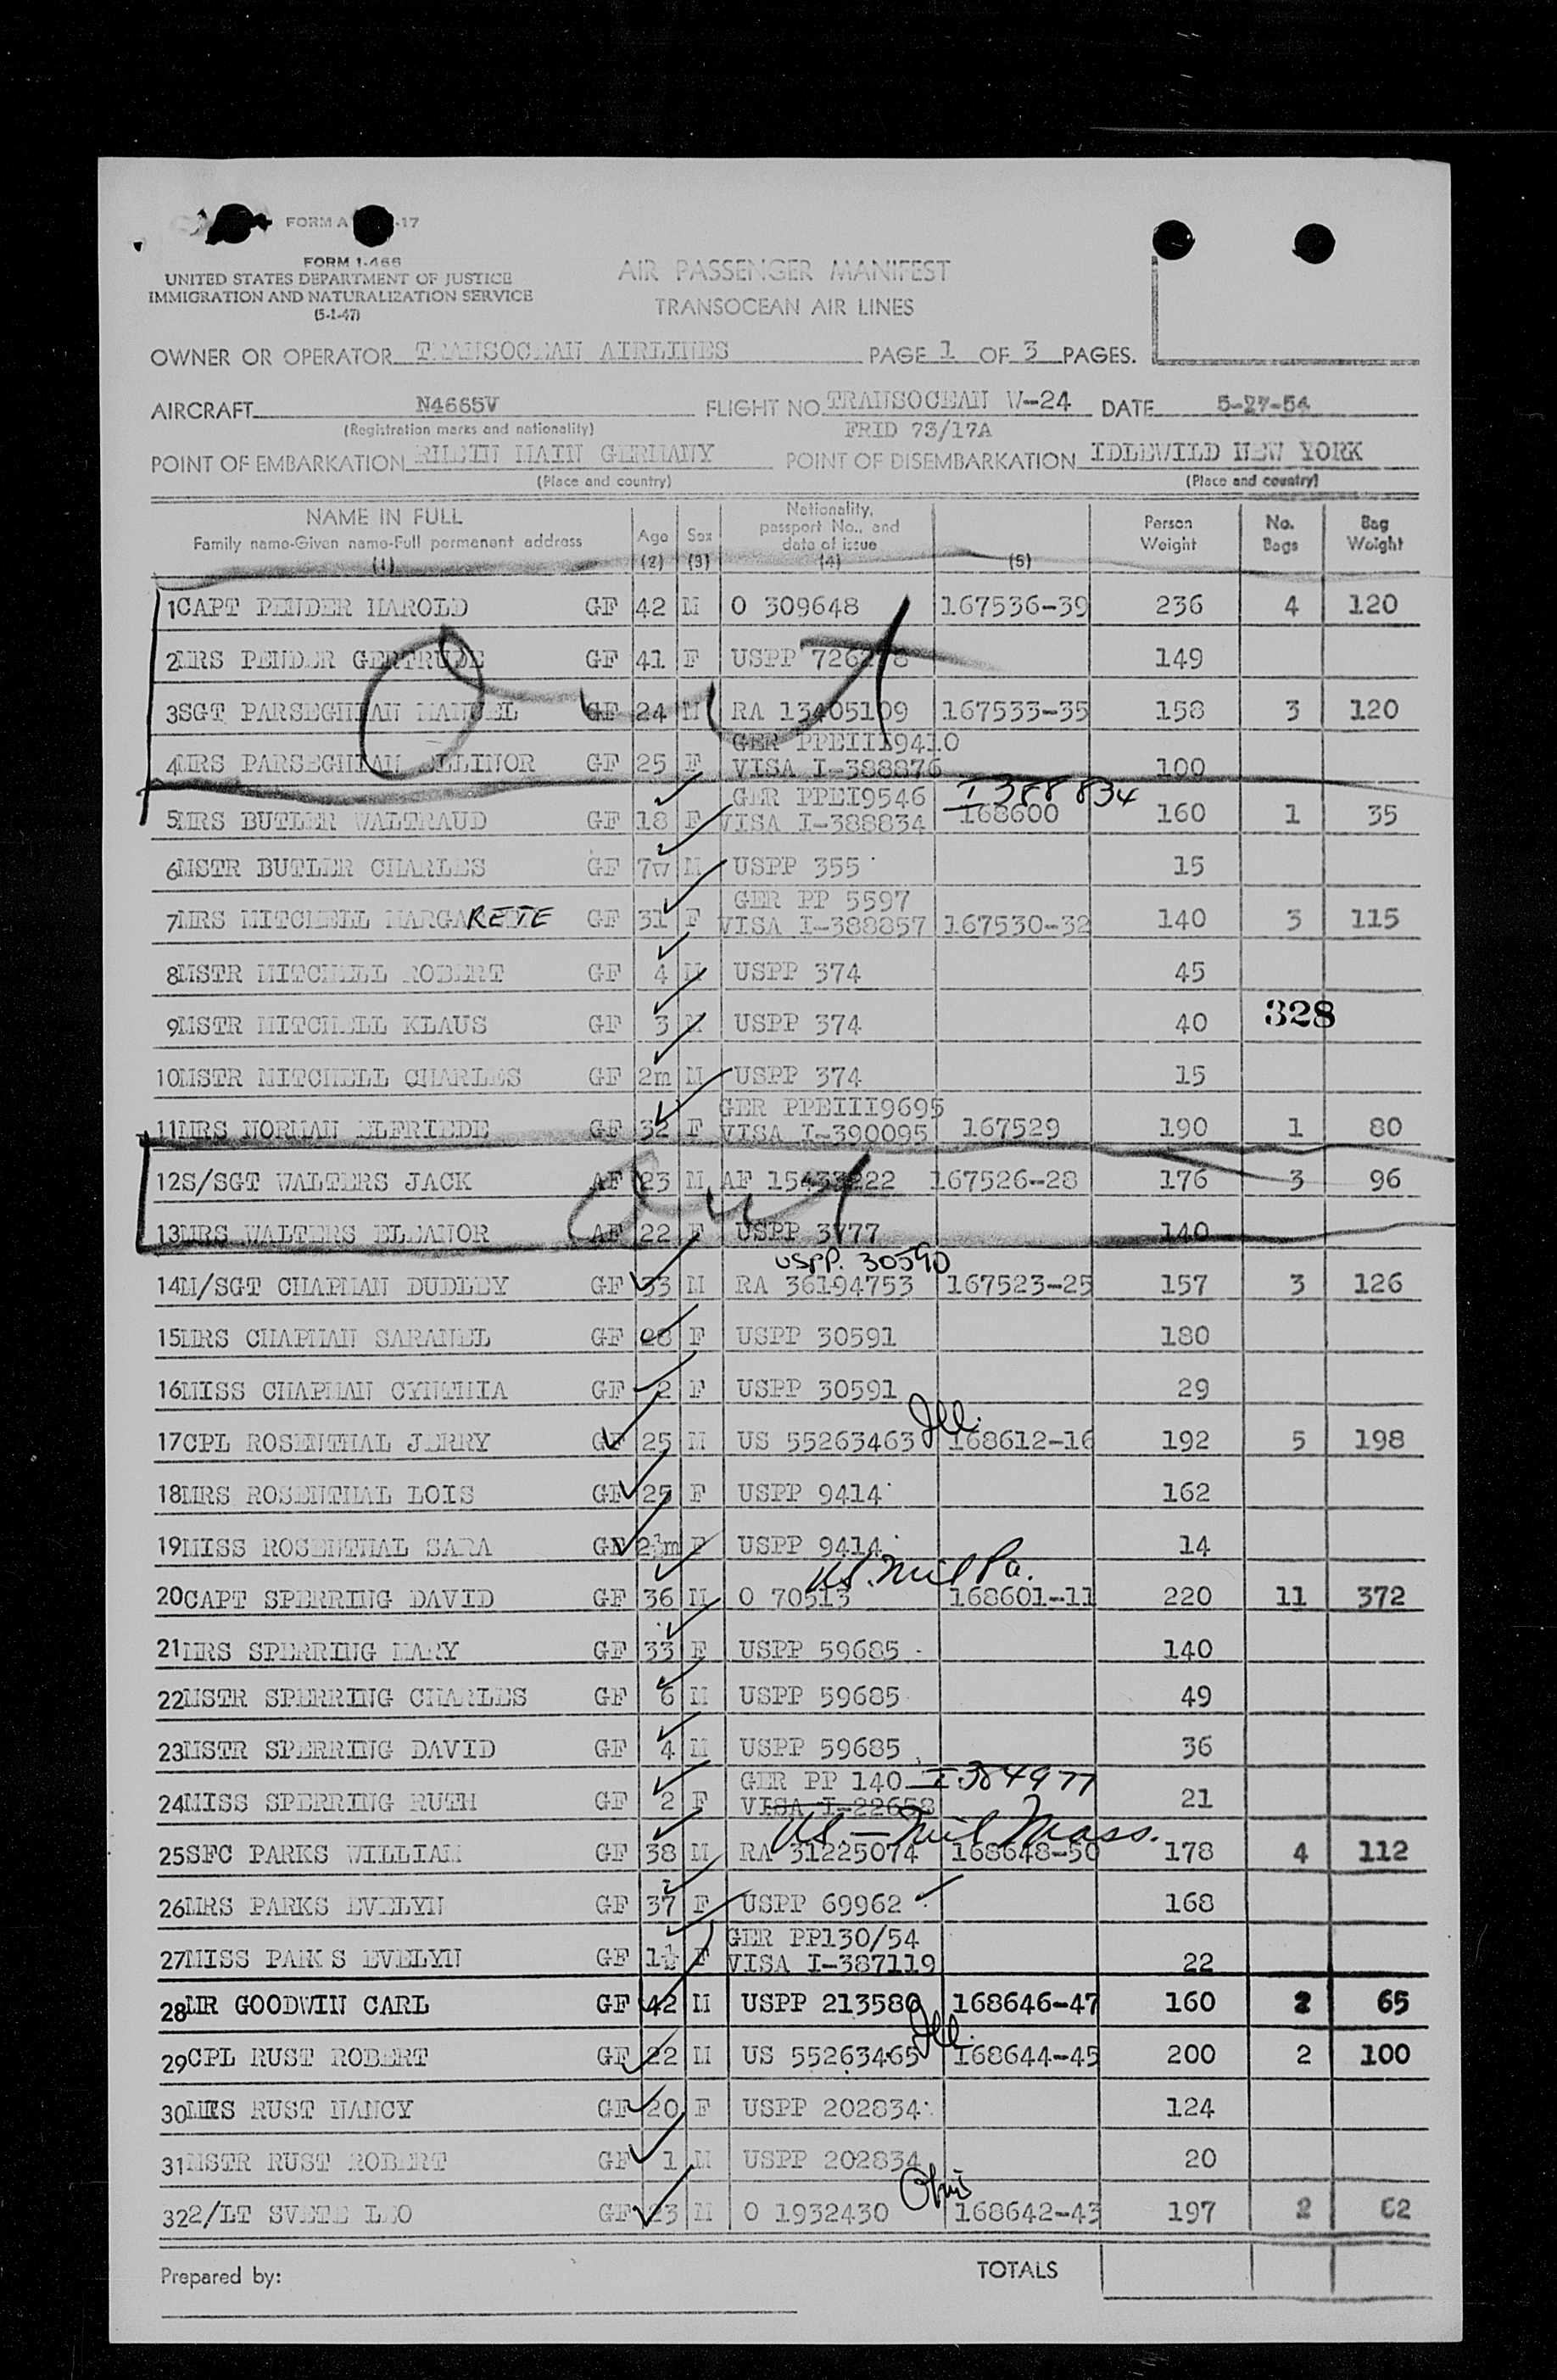 FORM A -17
FORM I-466
UNITED STATES DEPARTMENT OF JUSTICE
IMMIGRATION AND NATURALIZATION SERVICE
(5-1-47)
AIR PASSENGER MANIFEST
TRANSOCEAN AIR LINES
OWNER OR OPERATOR TRANSOCEAN AIRLINES PAGE 1 OF 3 PAGES.
AIRCRAFT N4665V FLIGHT NO. TRANSOCEAN W-24 DATE 5-27-54
(Registration marks and nationality) FRID 73/17A
POINT OF EMBARKATION RHEIN MAIN GERMANY POINT OF DISEMBARKATION IDLEWILD NEW YORK
(Place and country) (Place and country)
NAME IN FULL
Family name-Given name-Full permanent address
(1)
Age
(2)
Sex
(3)
Nationality,
passport No., and
date of issue
(4)
(5)
Person
Weight
No.
Bags
Bag
Weight
1 CAPT PENDER HAROLD GF 42 M O 309648 167536-39 236 4 120
Out
2 MRS PENDER GERTRUDE GF 41 F USPP 149
3 SGT PARSEGHIAN MANUEL GF 24 M RA 13405109 167533-35 158 3 120
GER PPEIII9410
4 MRS PARSEGHIAN ELLINOR GF 25 F VISA I-388876 100
GER PPEI9546 I 388834
5 MRS BUTLER WALTRAUD GF 18 F VISA I-388834 168600 160 1 35
6 MSTR BUTLER CHARLES GF 7w M USPP 355 15
GER PP 5597
7 MRS MITCHELL MARGARETE GF 31 F VISA I-388857 167530-32 140 3 115
8 MSTR MITCHELL ROBERT GF 4 M USPP 374 45
9 MSTR MITCHELL KLAUS GF 3 M USPP 374 40 328
10 MSTR MITCHELL CHARLES GF 2m M USPP 374 15
GER PPEIII9695
11 MRS NORMAN ELFRIEDE GF 32 F VISA I-390095 167529 190 1 80
12 S/SGT WALTERS JACK AF 23 M AF 167526-28 176 3 96
Out
13 MRS WALTERS ELEANOR AF 22 F USPP 3777 140
USPP. 30590
14 M/SGT CHAPMAN DUDLEY GF 33 M RA 36194753 167523-25 157 3 126
15 MRS CHAPMAN SARANEL GF 28 F USPP 30591 180
16 MISS CHAPMAN CYNTHIA GF 2 F USPP 30591 29
Ill.
17 CPL ROSENTHAL JERRY GF 25 M US 55263463 168612-16 192 5 198
18 MRS ROSENTHAL LOIS GF 25 F USPP 9414 162
19 MISS ROSENTHAL SARA GF 2½m F USPP 9414 14
US. Mil Pa.
20 CAPT SPERRING DAVID GF 36 M O 70513 168601-11 220 11 372
21 MRS SPERRING MARY GF 33 F USPP 59685 140
22 MSTR SPERRING CHARLES GF 6 M USPP 59685 49
23 MSTR SPERRING DAVID GF 4 M USPP 59685 36
GER PP 140 I 384977
24 MISS SPERRING RUTH GF 2 F VISA I-22658 21
US - Mil Mass.
25 SFC PARKS WILLIAM GF 38 M RA 31225074 168648-50 178 4 112
26 MRS PARKS EVELYN GF 37 F USPP 69962 168
GER PP130/54
27 MISS PARKS EVELYN GF 1½ F VISA I-387119 22
28 MR GOODWIN CARL GF 42 M USPP 213580 168646-47 160 2 65
Ill.
29 CPL RUST ROBERT GF 22 M US 55263465 168644-45 200 2 100
30 MRS RUST NANCY GF 20 F USPP 202834 124
31 MSTR RUST ROBERT GF 1 M USPP 202834 20
Ohio
32 2/LT SVETE LEO GF 23 M O 1932430 168642-43 197 2 62
Prepared by: TOTALS